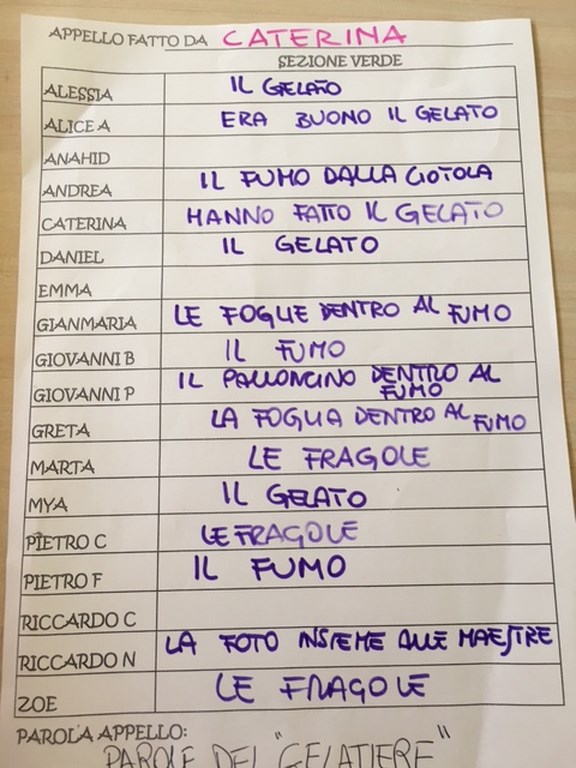 APPELLO FATTO DA CATERINA
SEZIONE VERDE
ALESSIA IL GELATO
ALICE A ERA BUONO IL GELATO
ANAHID
ANDREA IL FUMO DALLA CIOTOLA
CATERINA HANNO FATTO IL GELATO
DANIEL IL GELATO
EMMA
GIANMARIA LE FOGLIE DENTRO AL FUMO
GIOVANNI B IL FUMO
GIOVANNI P IL PALLONCINO DENTRO AL
FUMO
GRETA LA FOGLIA DENTRO AL FUMO
MARTA LE FRAGOLE
MYA IL GELATO
PIETRO C LE FRAGOLE
PIETRO F IL FUMO
RICCARDO C
RICCARDO N LA FOTO INSIEME ALLE MAESTRE
ZOE LE FRAGOLE
PAROLA APPELLO:
PAROLE DEL "GELATIERE"